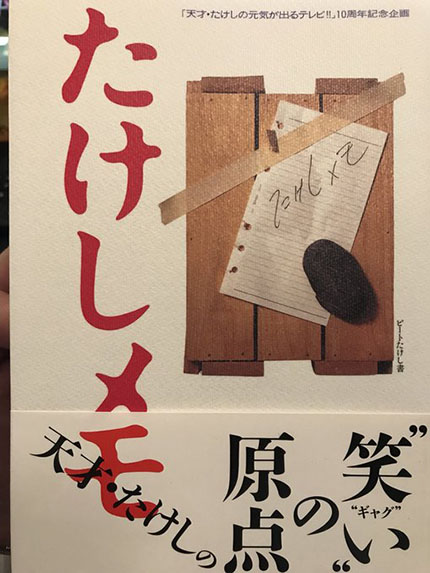 「天才・たけしの元気が出るテレビ!!」10周年記念企画
たけしメモ
たけしメモ
ビートたけし書
天才・たけしの
"笑い"
"ギャグ"
の
原点